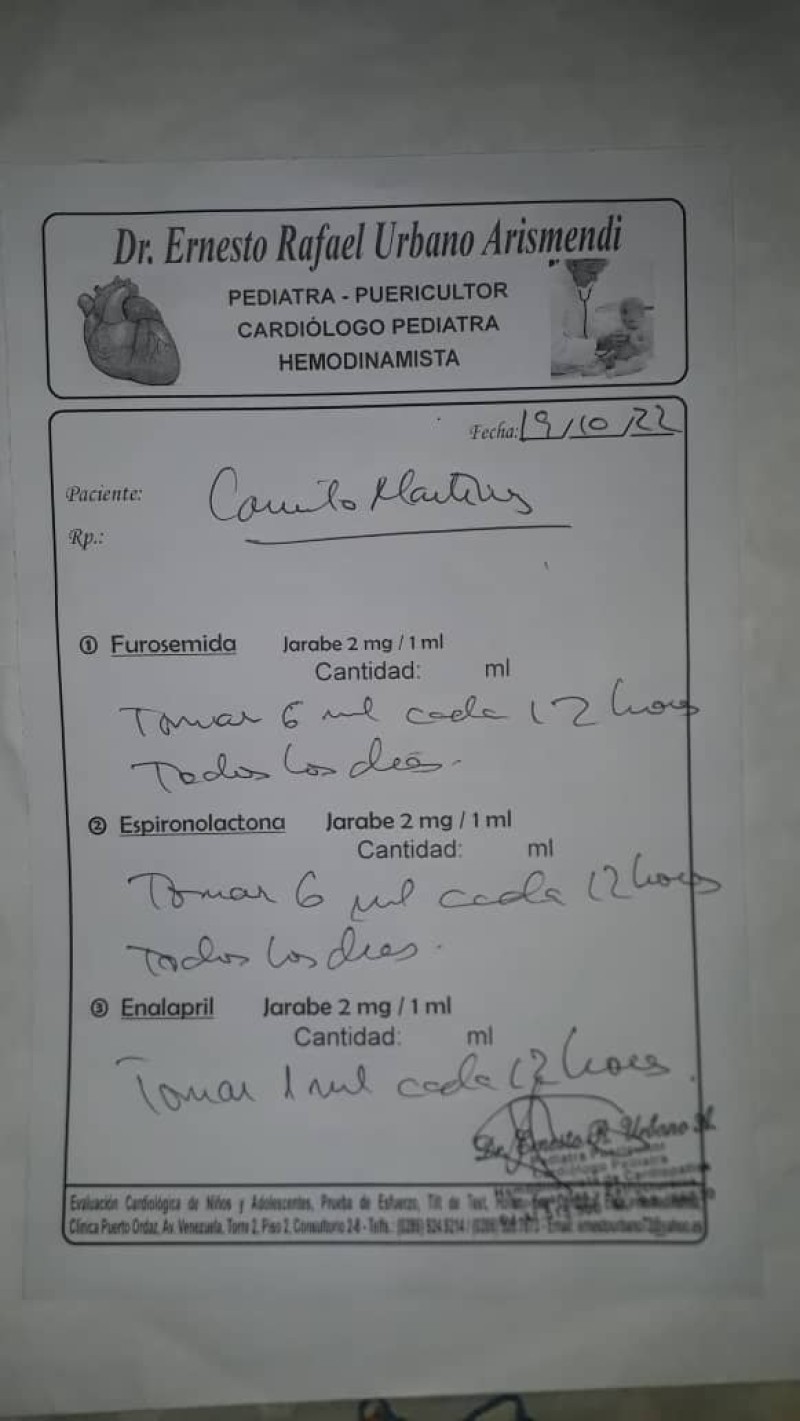 Dr. Ernesto Rafael Urbano Arismendi
PEDIATRA - PUERICULTOR
CARDIÓLOGO PEDIATRA
HEMODINAMISTA
Fecha: 19/10/22
Paciente: Camilo Martinez
Rp.:
① Furosemida Jarabe 2 mg / 1 ml
Cantidad: ml
Tomar 6 ml cada 12 horas
Todos los días.
② Espironolactona Jarabe 2 mg / 1 ml
Cantidad: ml
Tomar 6 ml cada 12 horas
Todos los días.
③ Enalapril Jarabe 2 mg / 1 ml
Cantidad: ml
Tomar 1 ml cada 12 horas.
Dr. Ernesto R. Urbano A.
Evaluación Cardiológica de Niños y Adolescentes, Prueba de Esfuerzo, Tilt de Test,
Clínica Puerto Ordaz, Av. Venezuela, Torre 2, Piso 2, Consultorio 2-8 - Telfs.